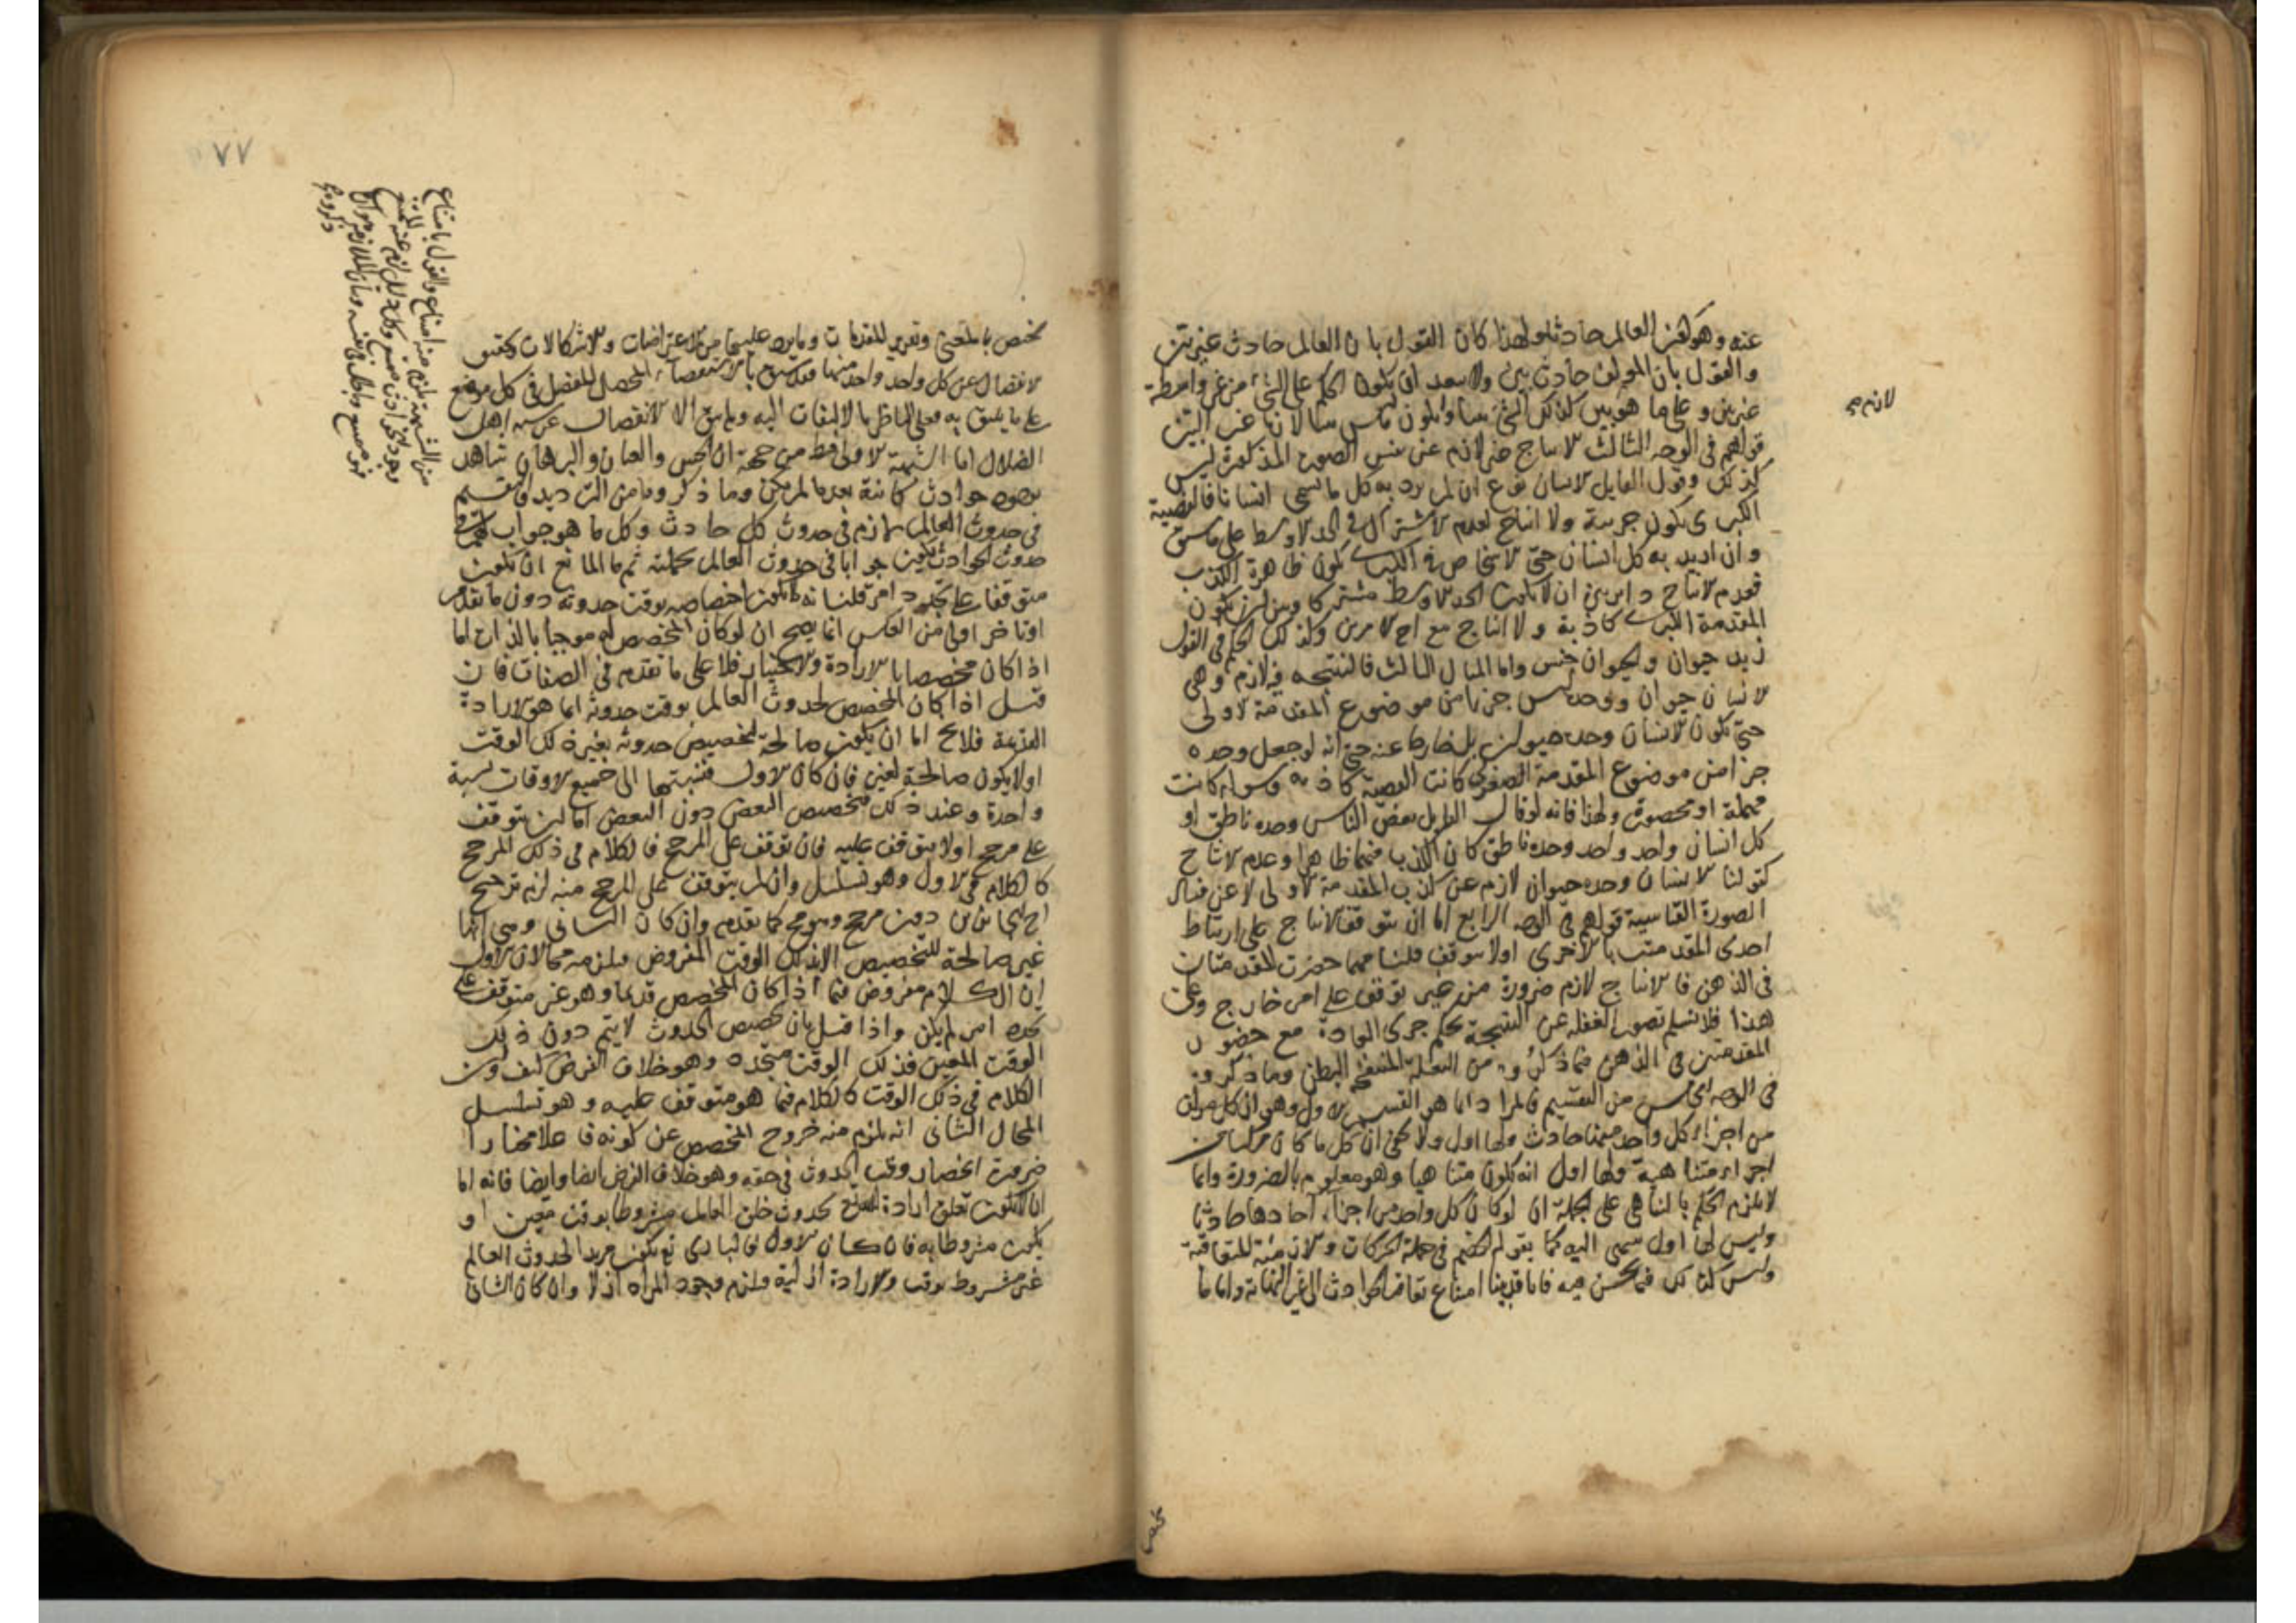 عنه وهو كون العالم حادثا ولهذا كان القول بان العالم حادث غير بين
والقول بان المؤلف حادث بين ولا يبعد ان يكون الحكم على الشئ من غير واسطة
غير بين وعلى ما هو بين كذلك الشئ
لازم صح
قولهم فى الوجه الثالث الانتاج غير لازم عن نفس الصورة المذكورة ليس
كذلك وقول القايل الانسان نوع ان لم يرد به كل ما يسمى انسانا فالقضية
الكبرى تكون جزيية ولا انتاج لعدم الاشتراك فى الحد الاوسط على ما سبق
وان اريد به كل انسان حتى الاشخاص فالكبرى تكون ظاهرة الكذب
فعدم الانتاج داير بين ان لا يكون الحد الاوسط مشتركا وبين ان تكون
المقدمة الكبرى كاذبة ولا انتاج مع احد الامرين وكذلك الحكم فى القول
زيد حيوان والحيوان جنس واما المثال الثالث فالنتيجة فيه لازمة وهى
الانسان حيوان ووحده ليس جزءا من موضوع المقدمة الاولى
حتى يكون الانسان وحده حيوان بل خارجا عنه حتى انه لو جعل وحده
جزا من موضوع المقدمة الصغرى كانت القضية كاذبة وسواء كانت
مهملة او محصورة ولهذا فانه لو قال القايل بعض الناس وحده ناطق او
كل انسان واحد واحد وحده ناطق كان الكذب فيهما ظاهرا وعدم الانتاج
كقولنا الانسان وحده حيوان لازم عن كذب المقدمة الاولى لا عن فساد
الصورة القياسية قولهم فى الوجه الرابع اما ان يتوقف الانتاج على ارتباط
احدى المقدمتين بالاخرى او لا يتوقف قلنا مهما حضرت المقدمتان
فى الذهن فالانتاج لازم ضرورة من غير توقف على امر خارج وعلى
هذا فلا نسلم تصور الغفلة عن النتيجة بحكم جرى العادة مع حضور
المقدمتين فى الذهن فيما ذكروه من البغلة المنتفخة البطن وما ذكروه
فى الوجه الخامس من التقسيم فالمراد انما هو القسم الاول وهو ان كل
من اجزاء كل واحد منها حادث ولها اول ولا يخفى ان كل ما كان مركبا من
اجزاء متناهية ولها اول انه يكون متناهيا وهو معلوم بالضرورة وانما
لا يلزم الحكم بالتناهى على الجملة ان لو كان كل واحد من اجزاء احادها حادثا
وليس لها اول تنتهى اليه كما يقوله الخصم فى جملة الحركات والازمنة المتعاقبة
وليس كذلك فيما نحن فيه فانا قد بينا امتناع تعاقب الحوادث الى غير النهاية واما ما
يختص
٧٧
يختص بالمعنى وتقرير المقدمات وما يرد عليها من الاعتراضات والاشكالات وتحقيق
الانفصال عن كل واحد واحد منها فقد سبق بالاستقصاء المحصل المفصل فى كل موضع
على ما يليق به فعلى الناظر بالالتفات اليه وما بقى الا الانفصال عن شبه اهل
الضلال اما الشبهة الاولى فمن جهة ان الحس والعيان والبرهان شاهد
بوجود حوادث كائنة بعد ما لم تكن وما ذكروه من الترديد والتقسيم
فى حدوث العالم لازم فى حدوث كل حادث وكل ما هو جواب لهم فى
حدوث الحوادث يكون جوابا فى حدوث العالم بجملته ثم ما المانع ان يكون
متوقفا على تجدد امر قلنا
او تاخر اولى من العكس انما يصح ان لو كان المخصص له موجبا بالذات اما
اذا كان مخصصا بالارادة والاختيار فلا على ما تقدم فى الصفات فان
قيل اذا كان المخصص لحدوث العالم بوقت حدوثه انما هو الارادة
القديمة فلا يخ اما ان تكون صالحة لتخصيص حدوثه بغير ذلك الوقت
او لا يكون صالحة لغيره فان كان الاول فنسبتها الى جميع الاوقات نسبة
واحدة وعند ذلك فتخصيص البعض دون البعض اما ان يتوقف
على مرجح او لا يتوقف عليه فان توقف على المرجح فالكلام فى ذلك المرجح
كالكلام فى الاول وهو تسلسل وان لم يتوقف على المرجح منه لزم ترجيح
احد الجائزين دون مرجح وهو مح كما تقدم وان كان الثانى وهى انها
غير صالحة للتخصيص الا بذلك الوقت المفروض فيلزمه محالان الاول
ان الكلام مفروض فيما اذا كان المخصص قديما وهو غير متوقف على
تجدد امر لم يكن واذا قيل بان تخصيص الحدوث لا يتم دون ذلك
الوقت المعين فذلك الوقت متجدد وهو خلاف الفرض كيف وان
الكلام فى ذلك الوقت كالكلام فيما هو متوقف عليه وهو تسلسل
المحال الثانى انه يلزم منه خروج المخصص عن كونه فاعلا مختارا
ضرورة انحصار وقت الحدوث فى حقه وهو خلاف الفرض ايضا وايضا فانه اما
ان لا يكون تعلق ارادة القديم بحدوث خلق العالم مشروطا بوقت معين او
يكون مشروطا به فان كان الاول فالبارى تع يكون مريدا لحدوث العالم
غير مشروط بوقت والارادة ازلية فيلزم وجود المراد ازلا وان كان الثانى